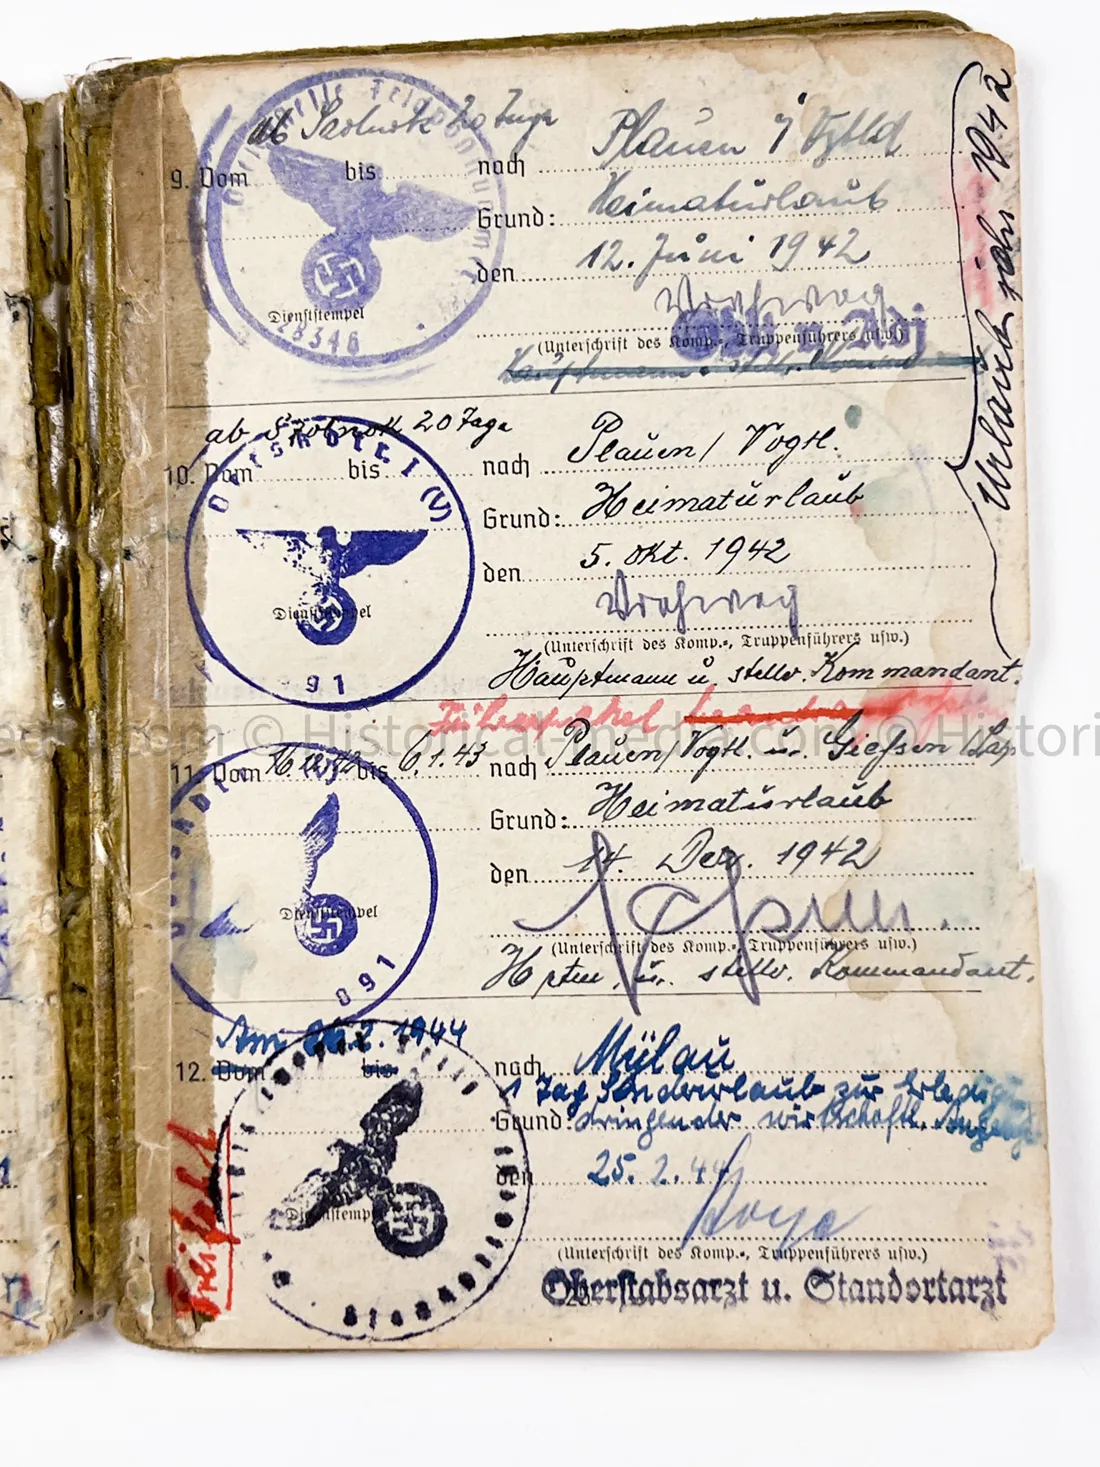 Dienststelle Feldpostnummer
28346
ab 20 Tage
Plauen i Vgtld
9. Vom bis nach
Heimaturlaub
Grund:
12. Juni 1942
den
Dienststempel
Obltn u. Adj
(Unterschrift des Komp.-, Truppenführers usw.)
Urlaub 1942
ab 20 Tage
Plauen/ Vogtl.
10. Vom bis nach
Ortskdtr. I (V)
Heimaturlaub
Grund:
5. Okt. 1942
den
Dienststempel
(Unterschrift des Komp.-, Truppenführers usw.)
891
Hauptmann u. stellv. Kommandant.
Führerpaket
11. Vom 16.12.42 bis 6.1.43 nach Plauen/Vogtl. u.
(V)
Heimaturlaub
Grund:
14. Dez. 1942
den
Dienststempel
(Unterschrift des Komp.-, Truppenführers usw.)
891
Hptm. u. stellv. Kommandant.
Am 26.2.1944
12. Vom bis nach Mylau
1 Tag Sonderurlaub zur Erledig.
Grund: dringender wirtschaftl. Angeleg.
den 25.2.44
Dienststempel
(Unterschrift des Komp.-, Truppenführers usw.)
Oberstabsarzt u. Standortarzt
© Historical-media.com
© Histori